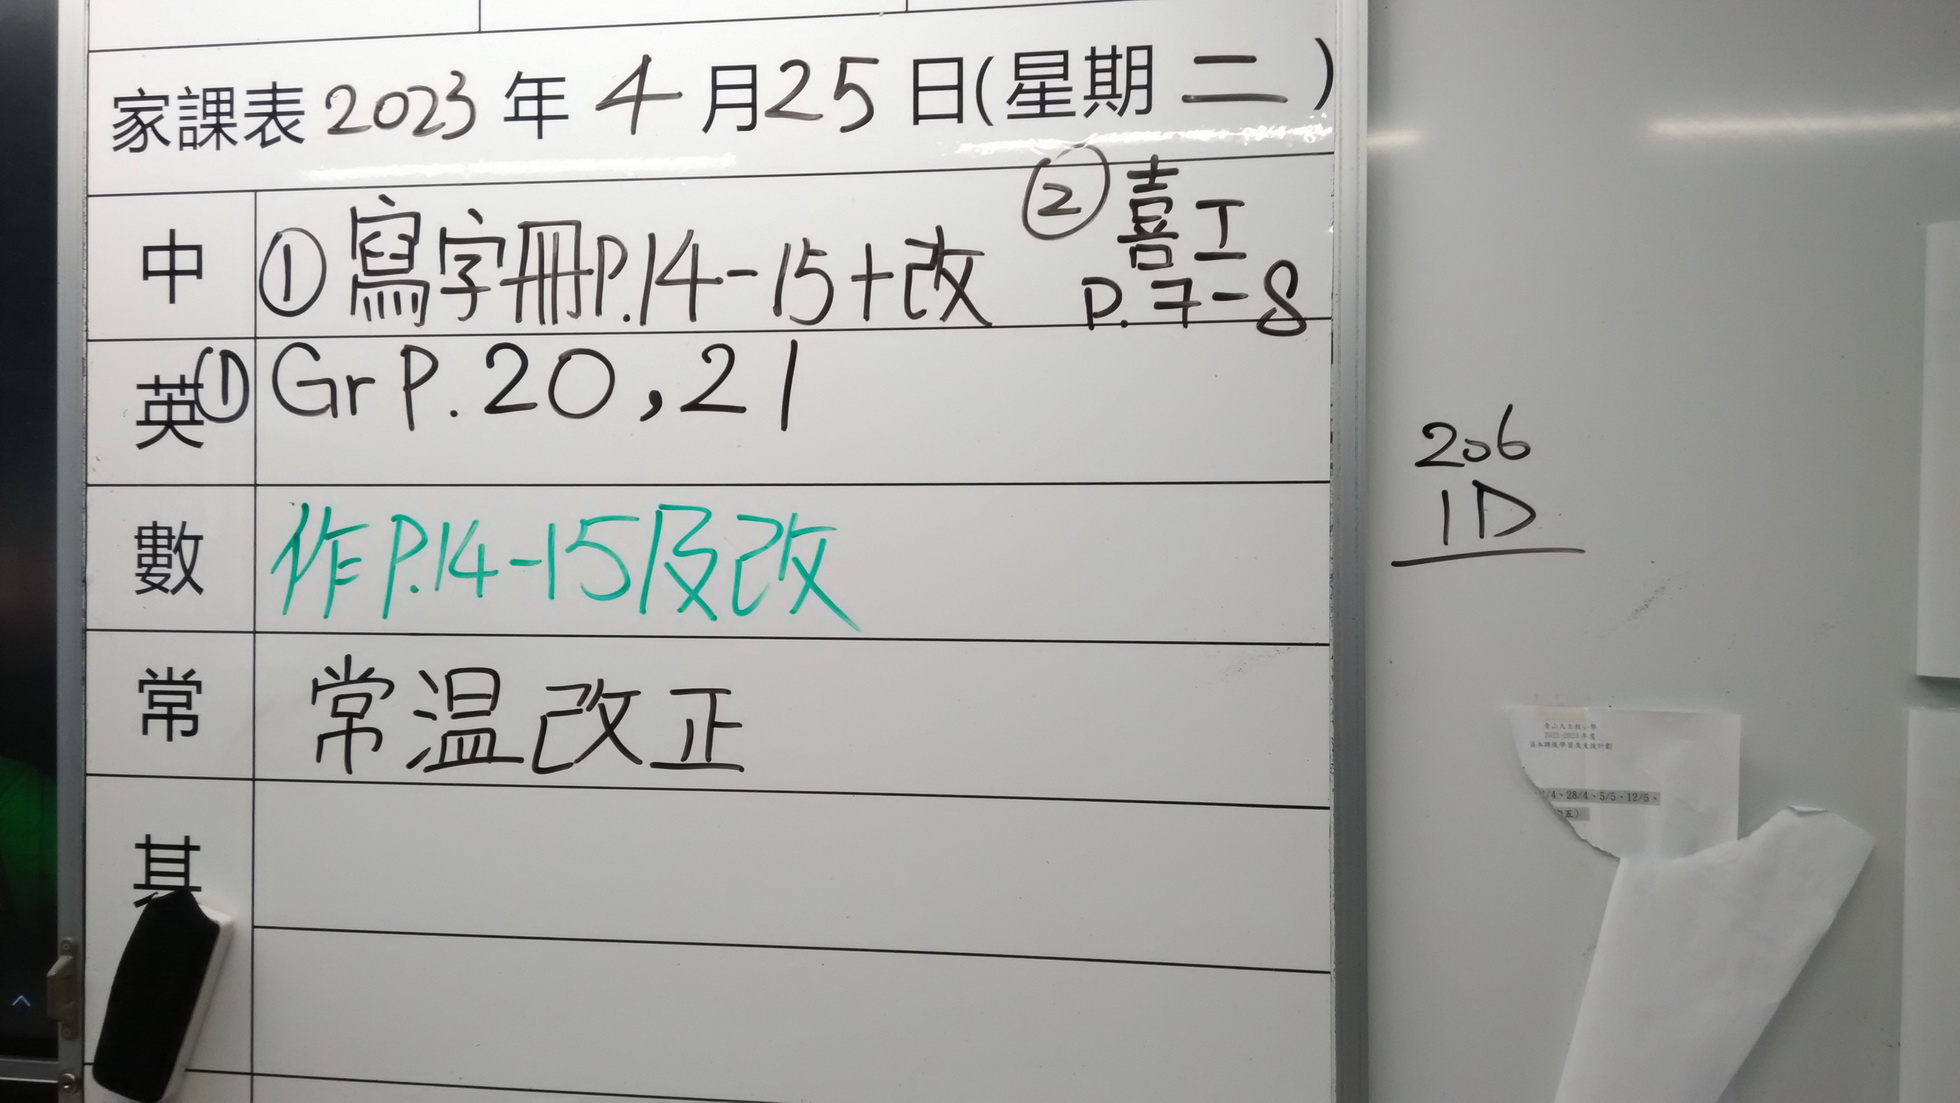 家課表 2023 年 4 月 25 日(星期 二 )
中 ① 寫字冊P.14-15+改 ② 喜工
P.7-8
英 ① Gr P. 20, 21
數 作P.14-15及改
常 常温改正
基
206
1D
2022-2023年度
/4、28/4、5/5、12/5、
五)